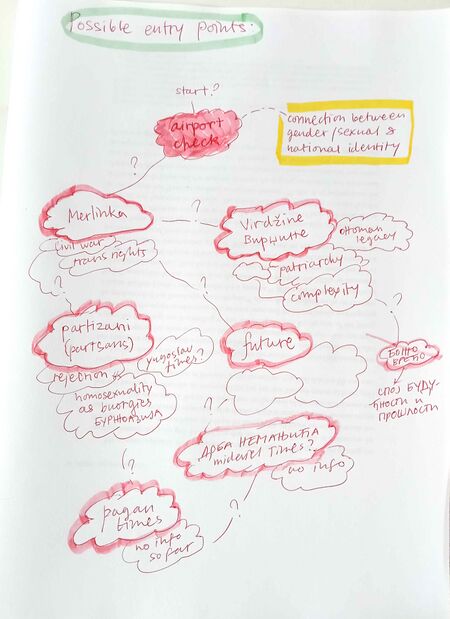 Possible entry points.
start?
airport
check
connection between
gender/sexual &
national identity
?
Merlinka
?
civil war
trans rights
Virdžine
Вирџине
ottoman
legacy
patriarchy
complexity
?
?
partizani
(partisans)
rejection
homosexuality
as buorgies
БУРЖОАЗИЈА
yugoslav
times?
future
СПОЈ БУДУ-
ЋНОСТИ И
ПРОШЛОСТИ
?
?
ДОБА НЕМАЊИЋА
midevel times?
no info
?
pagan
times
no info
so far
?